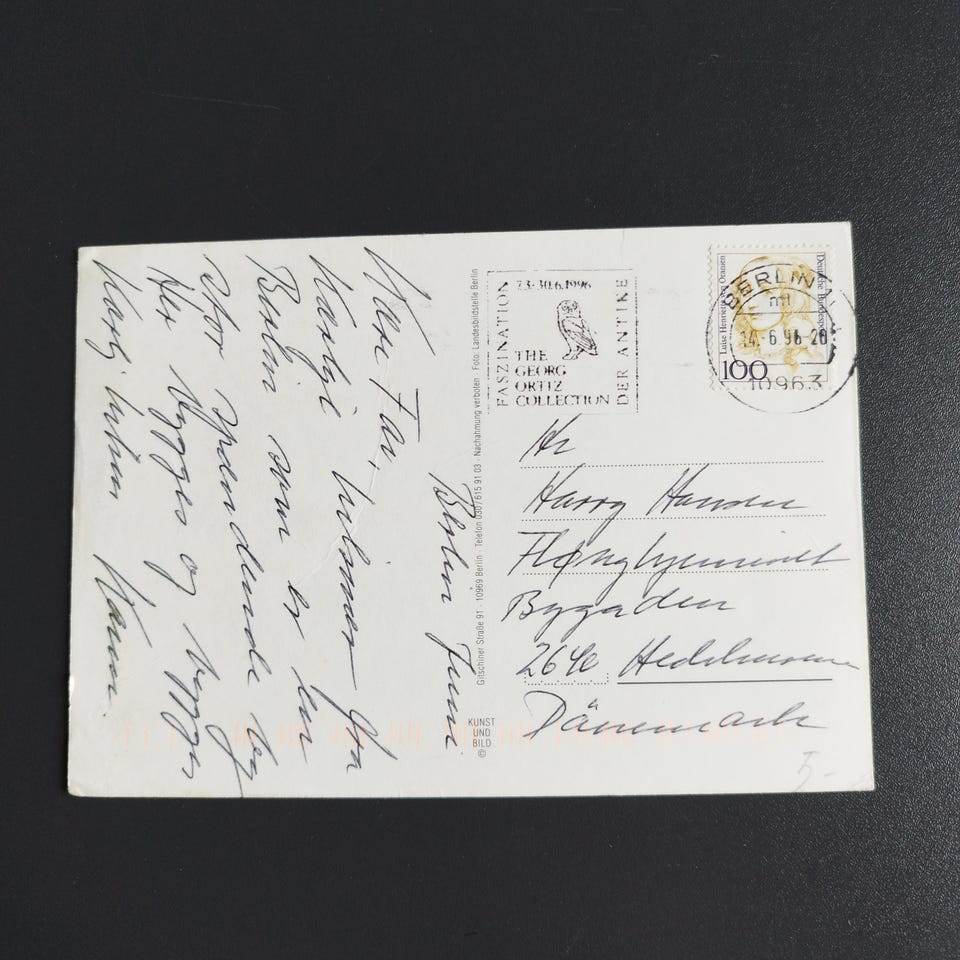 Berlin Juni
Kære Far,
Kærlig hilsner fra
Berlin som er en
stor spændende by
Her bygges og bygges
Kærlig hilsen
Gitschiner Straße 91 · 10969 Berlin · Telefon 030/615 91 03 · Nachahmung verboten · Foto: Landesbildstelle Berlin
KUNST
UND
BILD
©
7.3-30.6.1996
FASZINATION
THE
GEORG
ORTIZ
COLLECTION
DER ANTIKE
Luise Henriette von Oranien
Deutsche Bundespost
100
BERLIN
ml
14.-6.96-20
10963
Hr
Harry Hansen
Bygaden
2640 Hedehusene
Dänemark
5.-